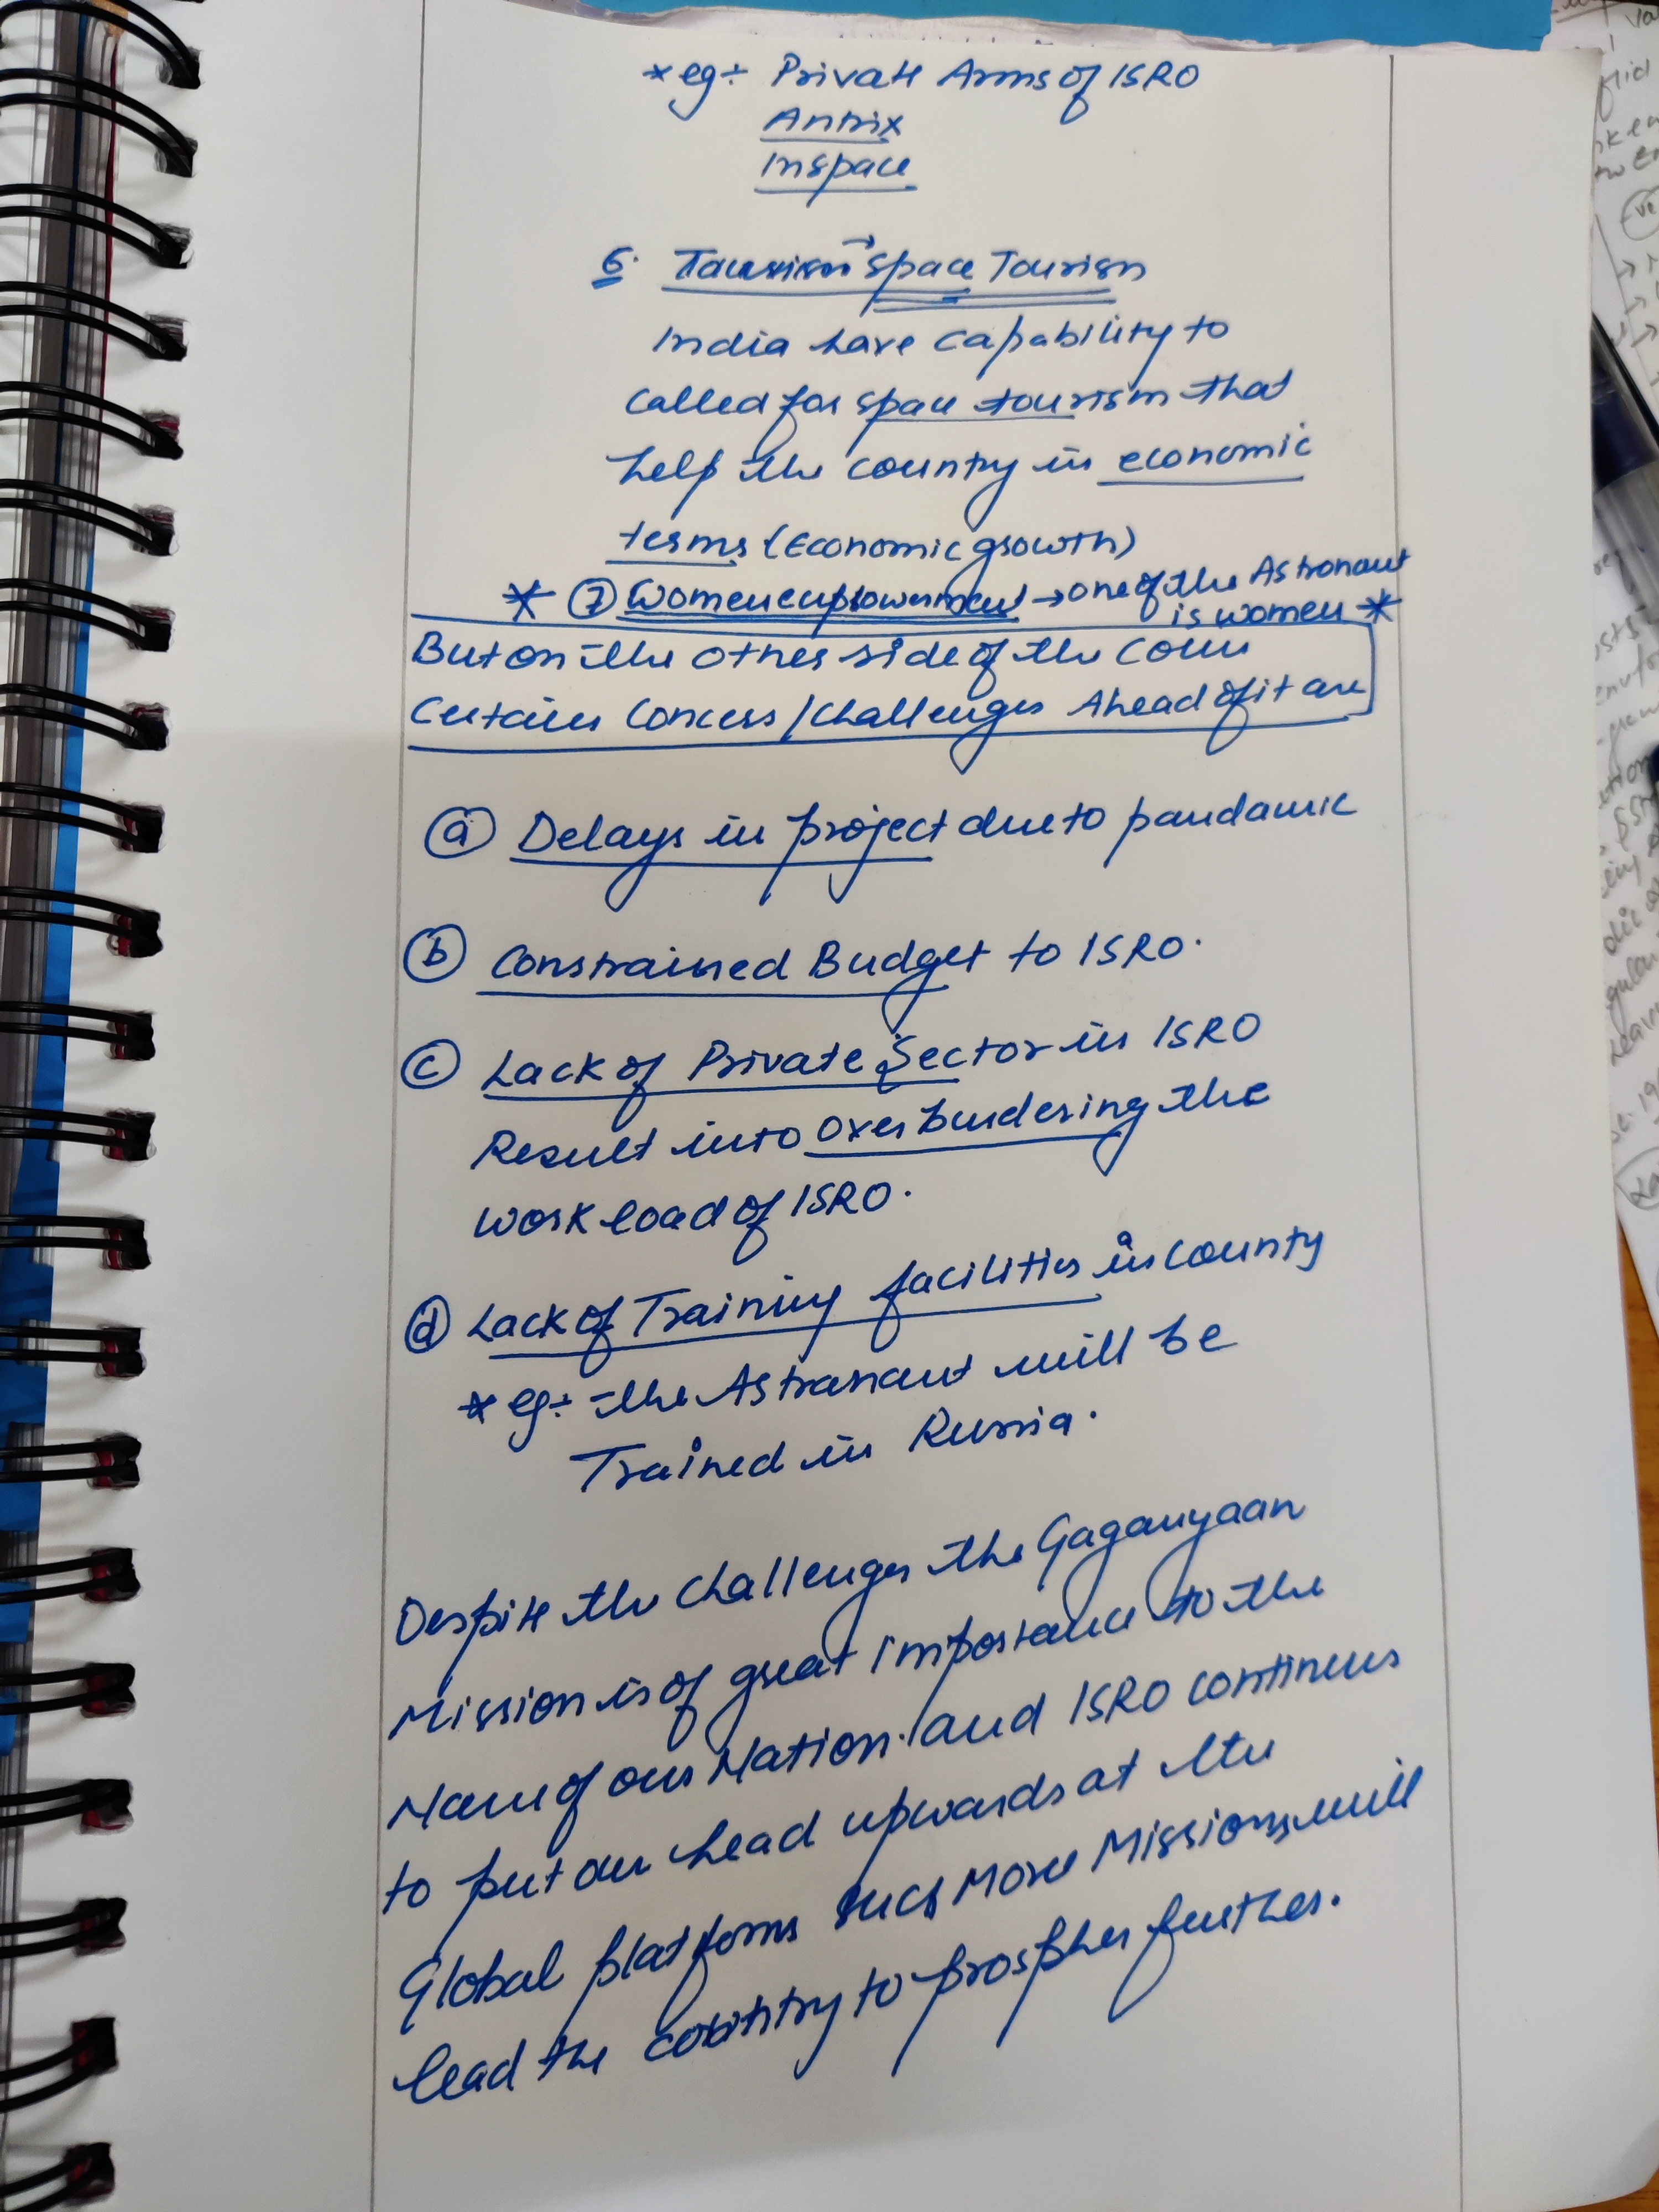 * eg:- Private Arms of ISRO
Antrix
Inspace
6. Tourism → Space Tourism
India have capability to
called for space tourism that
help the country in economic
terms (Economic growth)
* 7 Women empowerment → one of the Astronaut
is women *
But on the other side of the Coin
Certain Concerns / Challenges Ahead of it are
a Delays in project due to pandamic
b Constrained Budget to ISRO.
c Lack of Private Sector in ISRO
Result into over burdering the
work load of ISRO.
d Lack of Training facilities in county
* eg:- the Astranaut will be
Trained in Russia.
Despite the challenges the Gaganyaan
Mission is of great Importance to the
Name of our Nation. and ISRO continus
to put our head upwards at the
Global platforms such More Missions will
lead the country to prospher further.